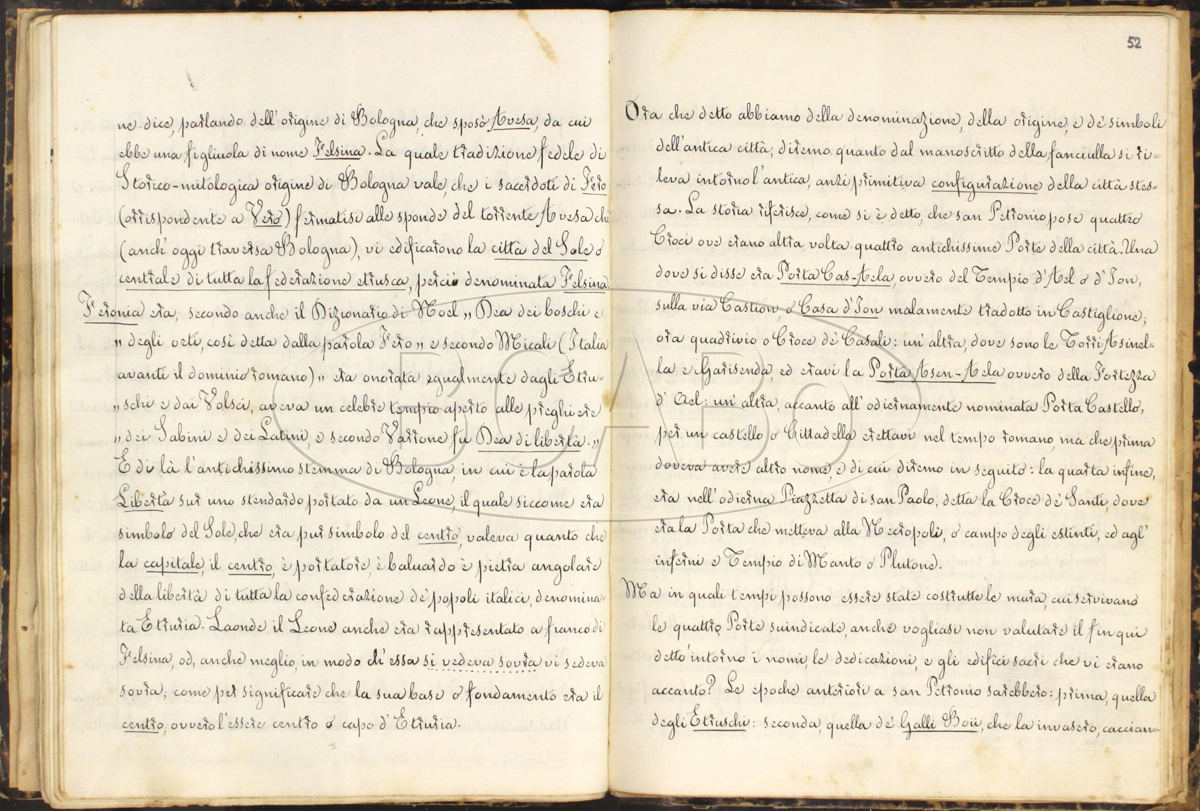 ne dice, parlando dell'origine di Bologna, che sposò Avesa, da cui
ebbe una figliuola di nome Felsina. La quale tradizione fedele di
Storico-mitologica origine di Bologna vale, che i sacerdoti di Fero
(orrispondente a Vero) fermatisi alle sponde del torrente Avesa che
(anch'oggi traversa Bologna), vi edificarono la città del Sole o
centrale di tutta la federazione etrusca, perciò denominata Felsina
Feronia era, secondo anche il Dizionario di Noel „ Dea dei boschi e
„ degli orti, così detta dalla parola Fero „ e secondo Micali (Italia
avanti il dominio romano) „ era onorata egualmente dagli Etru-
„ schi e dai Volsci, aveva un celebre tempio aperto alle preghiere
„ dei Sabini e dei Latini, e secondo Varrone fu Dea di libertà. „
E di là l'antichissimo stemma di Bologna, in cui è la parola
Liberta sur uno stendardo portato da un Leone, il quale siccome era
simbolo del Sole, che era pur simbolo del centro, valeva quanto che
la capitale, il centro, è portatore, è baluardo è pietra angolare
della libertà di tutta la confederazione de' popoli italici, denomina-
ta Etruria. Laonde il Leone anche era rappresentato a franco di
Felsina, od, anche meglio, in modo ch'essa si vedeva sovra vi sedeva
sovra; come per significare che la sua base o fondamento era il
centro, ovvero l'essere centro o capo d'Etruria.
52
Ora che detto abbiamo della denominazione, della origine, e de' simboli
dell'antica città, diremo quanto dal manoscritto della fanciulla si ri-
leva intorno l'antica, anzi primitiva configurazione della città stes-
sa. La storia riferisce, come si è detto, che san Petronio pose quattro
Croci ove erano altra volta quattro antichissime Porte della città. Una
dove si disse era Porta Cas-Aela, ovvero del Tempio d'Ael o d'Ion,
sulla via Castion, o Casa d'Ion malamente tradotto in Castiglione;
ora quadrivio o Croce de' Casali: un'altra, dove sono le Torri Asinel-
la e Garisenda, ed eravi la Porta Asen-Aela ovvero della Fortezza
d'Ael: un'altra, accanto all'odiernamente nominata Porta Castello,
per un castello o Cittadella erettavi nel tempo romano, ma che prima
doveva avere altro nome, e di cui diremo in seguito: la quarta infine,
era nell'odierna Piazzetta di san Paolo, detta la Croce de' Santi, dove
era la Porta che metteva alla Necropoli, o campo degli estinti, ed agl'
inferni e Tempio di Manto o Plutone).
Ma in quali tempi possono essere state costrutte le mura, cui servivano
le quattro Porte suindicate, anche vogliasi non valutare il fin qui
detto intorno i nomi, le dedicazioni, e gli edifici sacri che vi erano
accanto? Le epoche anteriori a san Petronio sarebbero: prima, quella
degli Etruschi: seconda, quella de' Galli Boii, che la invasero, caccian-
BCABo